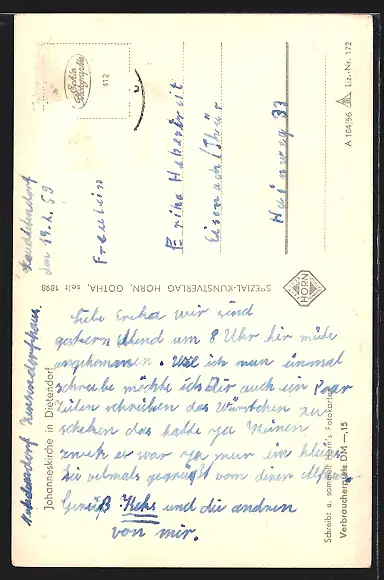 Echte Photographie
412
Neudietendorf
den 19.2.59
Freulein
Erika Habereit
Eisenach/Thür
Hainweg 33
A 104/56 Liz.-Nr. 172
SPEZIAL-KUNSTVERLAG HORN, GOTHA, seit 1898
HORN
Johanneskirche in Dietendorf
Schreibt u. sammelt Horn's Fotokarten
Verbraucherpreis DM —,15
Liebe Erika wir sind
gestern Abend um 8 Uhr hir müde
angekommen. Weil ich nun einmal
schreibe möchte ich dir auch ein Paar
Zeilen schreiben das Würstchen zu
schiken das hatte ja keinen
zwek er war ja nur ein kleines
Sei vielmals gegrüßt von deiner
Grüß Heks und die andren
von mir.